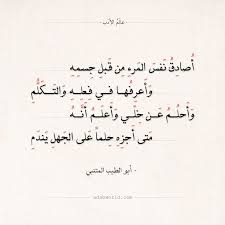 عالم الأدب
أُصادِقُ نَفسَ المَرءِ مِن قَبلِ جِسمِهِ
وَأَعرِفُها في فِعلِهِ وَالتَكَلُّمِ
وَأَحلُمُ عَن خِلّي وَأَعلَمُ أَنَّهُ
مَتى أَجزِهِ حِلماً عَلى الجَهلِ يَندَمِ
- أبو الطيب المتنبي
adabworld.com